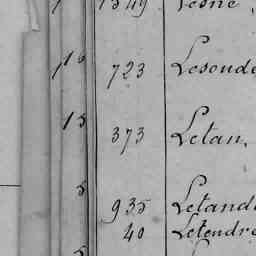 1549 Lesne,
16 723 Lesoude
15 373 Letan,
5 935 Letand
40 Letendre
5